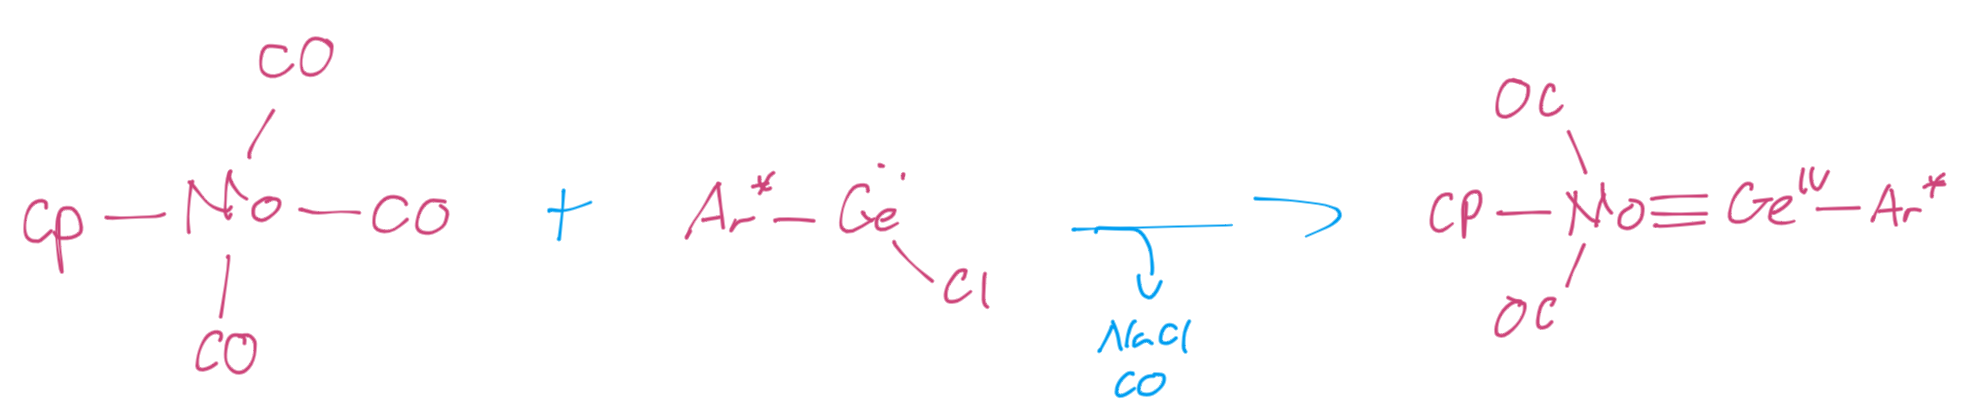 CO
Cp — Mo — CO
CO
+
Ar* — Ge
Cl
NaCl
CO
OC
CP — Mo ≡ Ge IV — Ar*
OC